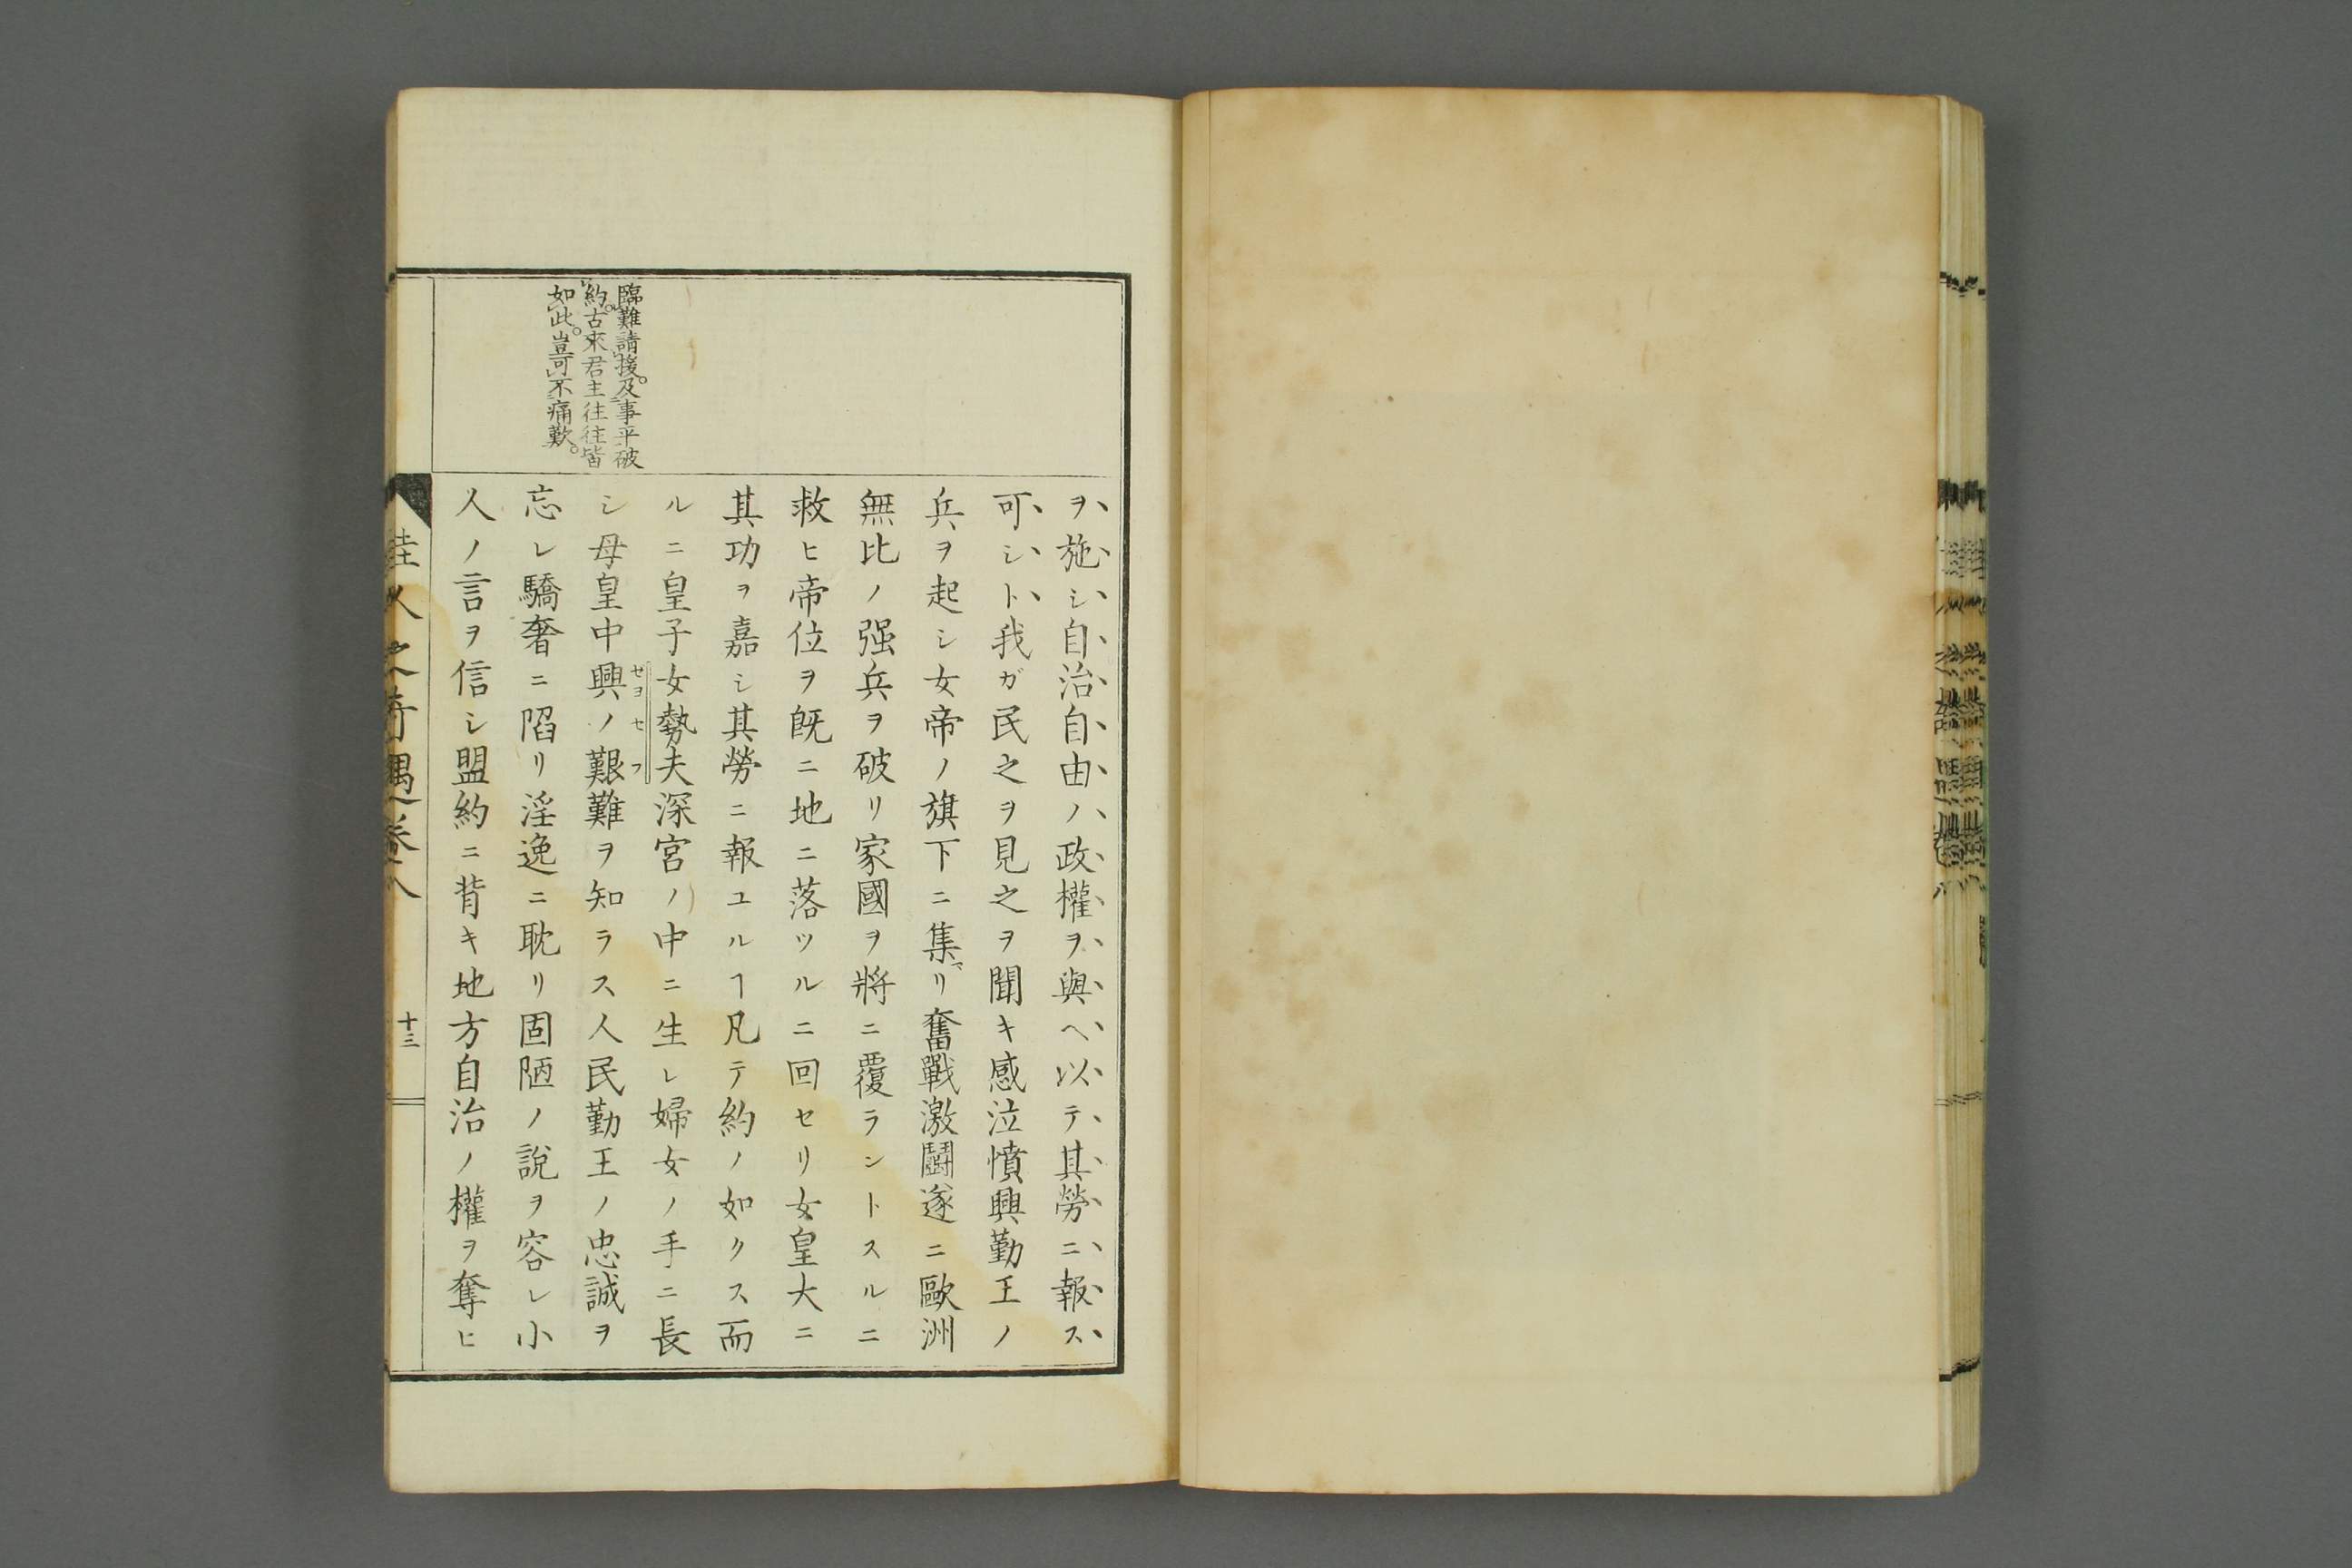 臨難請援。及事平破
約。古來君主往往皆
如此。豈可不痛歎。
ヲ施シ自治自由ノ政權ヲ與ヘ以テ其勞ニ報ス
可シト我ガ民之ヲ見之ヲ聞キ感泣憤興勤王ノ
兵ヲ起シ女帝ノ旗下ニ集リ奮戰激鬪遂ニ歐洲
無比ノ强兵ヲ破リ家國ヲ將ニ覆ラントスルニ
救ヒ帝位ヲ既ニ地ニ落ツルニ回セリ女皇大ニ
其功ヲ嘉シ其勞ニ報ユルヿ凡テ約ノ如クス而
ルニ皇子女勢夫深宮ノ中ニ生レ婦女ノ手ニ長
シ母皇中興ノ艱難ヲ知ラス人民勤王ノ忠誠ヲ
忘レ驕奢ニ陷リ淫逸ニ耽リ固陋ノ說ヲ容レ小
人ノ言ヲ信シ盟約ニ背キ地方自治ノ權ヲ奪ヒ
佳人之奇遇卷八
十三